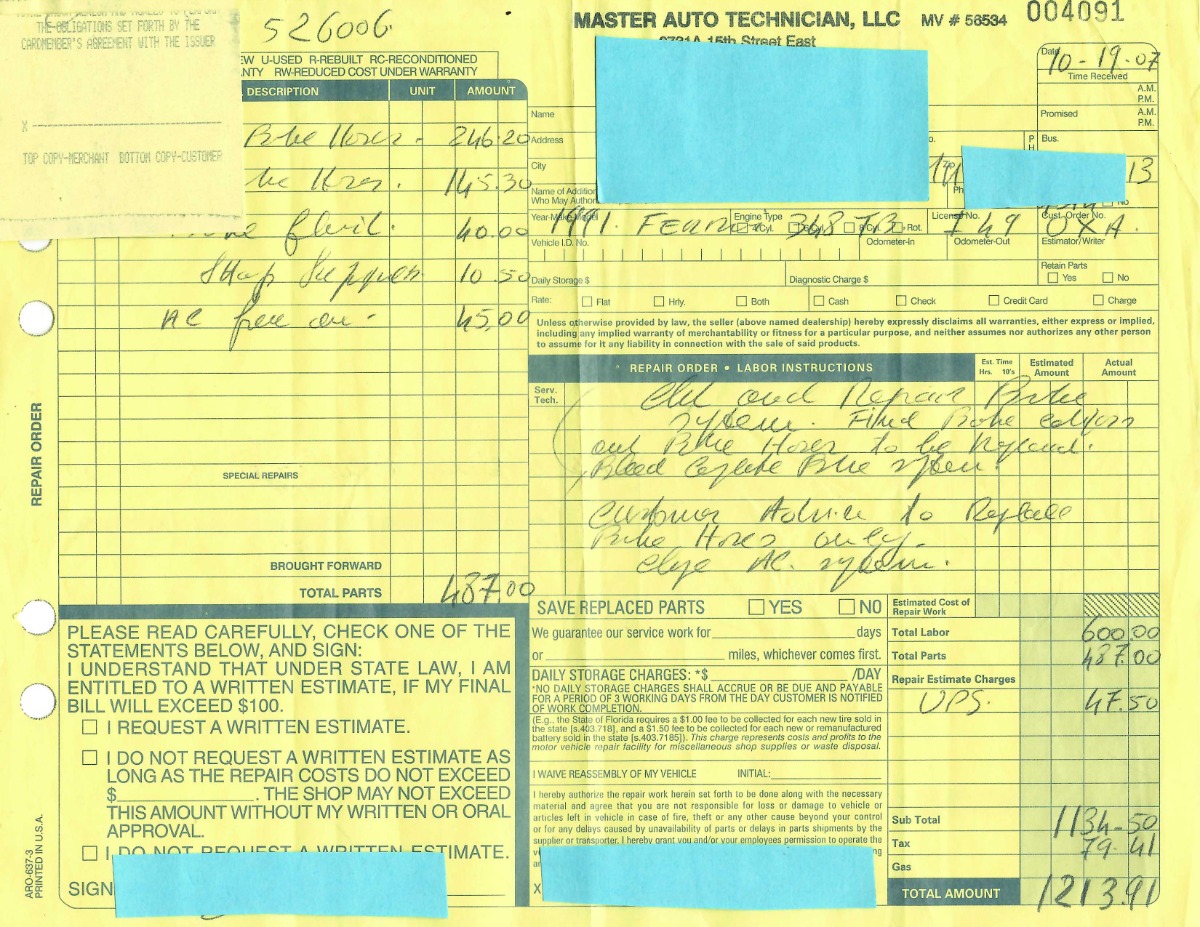 THE OBLIGATIONS SET FORTH BY THE
CARDMEMBER'S AGREEMENT WITH THE ISSUER
X
TOP COPY-MERCHANT BOTTOM COPY-CUSTOMER
526006
MASTER AUTO TECHNICIAN, LLC MV # 56534 004091
15th Street East
EW U-USED R-REBUILT RC-RECONDITIONED
NTY RW-REDUCED COST UNDER WARRANTY
DESCRIPTION UNIT AMOUNT
Hoses - 246.20
Hoses. 145.30
40.00
Shop Supplies 10.50
AC freeon - 45.00
SPECIAL REPAIRS
BROUGHT FORWARD
TOTAL PARTS 487.00
REPAIR ORDER
ARO-637-3
PRINTED IN U.S.A.
Date 10-19-07
Time Received
A.M.
P.M.
Promised A.M.
P.M.
Name
Address
City
Bus.
13
Name of Addition
Who May Author
Year-Make-Model 1991. Engine Type License No. Cust. Order No.
Vehicle I.D. No. Odometer-In Odometer-Out Estimator/Writer
Retain Parts
Yes No
Daily Storage $ Diagnostic Charge $
Rate: Flat Hrly. Both Cash Check Credit Card Charge
Unless otherwise provided by law, the seller (above named dealership) hereby expressly disclaims all warranties, either express or implied,
including any implied warranty of merchantability or fitness for a particular purpose, and neither assumes nor authorizes any other person
to assume for it any liability in connection with the sale of said products.
REPAIR ORDER • LABOR INSTRUCTIONS Est. Time Hrs. 10's Estimated Amount Actual Amount
Serv.
Tech.
and Repair Brake
System. Find Brake
Brake Hoses to be
Bleed Brake System.
Customer Advice to Replace
Brake Hoses only.
AC. System.
SAVE REPLACED PARTS YES NO
We guarantee our service work for days
or miles, whichever comes first.
DAILY STORAGE CHARGES: *$ /DAY
*NO DAILY STORAGE CHARGES SHALL ACCRUE OR BE DUE AND PAYABLE
FOR A PERIOD OF 3 WORKING DAYS FROM THE DAY CUSTOMER IS NOTIFIED
OF WORK COMPLETION.
(E.g., the State of Florida requires a $1.00 fee to be collected for each new tire sold in
the state [s.403.718], and a $1.50 fee to be collected for each new or remanufactured
battery sold in the state [s.403.7185]). This charge represents costs and profits to the
motor vehicle repair facility for miscellaneous shop supplies or waste disposal.
I WAIVE REASSEMBLY OF MY VEHICLE INITIAL:
I hereby authorize the repair work herein set forth to be done along with the necessary
material and agree that you are not responsible for loss or damage to vehicle or
articles left in vehicle in case of fire, theft or any other cause beyond your control
or for any delays caused by unavailability of parts or delays in parts shipments by the
supplier or transporter. I hereby grant you and/or your employees permission to operate the
X
Estimated Cost of
Repair Work
Total Labor 600.00
Total Parts 487.00
Repair Estimate Charges
UPS. 47.50
Sub Total 1134-50
Tax 79.41
Gas
TOTAL AMOUNT 1213.91
PLEASE READ CAREFULLY, CHECK ONE OF THE
STATEMENTS BELOW, AND SIGN:
I UNDERSTAND THAT UNDER STATE LAW, I AM
ENTITLED TO A WRITTEN ESTIMATE, IF MY FINAL
BILL WILL EXCEED $100.
I REQUEST A WRITTEN ESTIMATE.
I DO NOT REQUEST A WRITTEN ESTIMATE AS
LONG AS THE REPAIR COSTS DO NOT EXCEED
$ . THE SHOP MAY NOT EXCEED
THIS AMOUNT WITHOUT MY WRITTEN OR ORAL
APPROVAL.
I DO NOT REQUEST A WRITTEN ESTIMATE.
SIGN